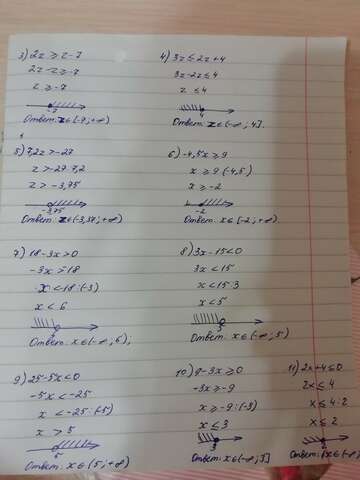 3) 2z ≥ z-7
2z-z ≥ -7
z ≥ -7
-7
Ответ: z∈[-7; +∞)
4) 3z ≤ 2z+4
3z-2z ≤ 4
z ≤ 4
4
Ответ: z∈(-∞; 4].
5) 7,2z > -27
z > -27:7,2
z > -3,75
-3,75
Ответ: z∈(-3,75; +∞)
6) -4,5x ≥ 9
x ≥ 9:(-4,5)
x ≥ -2
-2
Ответ: x∈[-2; +∞).
7) 18-3x > 0
-3x > 18
x < -18:(-3)
x < 6
Ответ: x∈(-∞; 6),
8) 3x-15 < 0
3x < 15
x < 15:3
x < 5
5
Ответ: x∈(-∞; 5)
9) 25-5x < 0
-5x < -25
x < -25:(-5)
x > 5
5
Ответ: x∈(5; +∞)
10) 9-3x ≥ 0
-3x ≥ -9
x ≥ -9:(-3)
x ≤ 3
3
Ответ: x∈(-∞; 3]
11) 2x+4 ≤ 0
2x ≤ 4
x ≤ 4:2
x ≤ 2
Ответ: x∈(-∞;